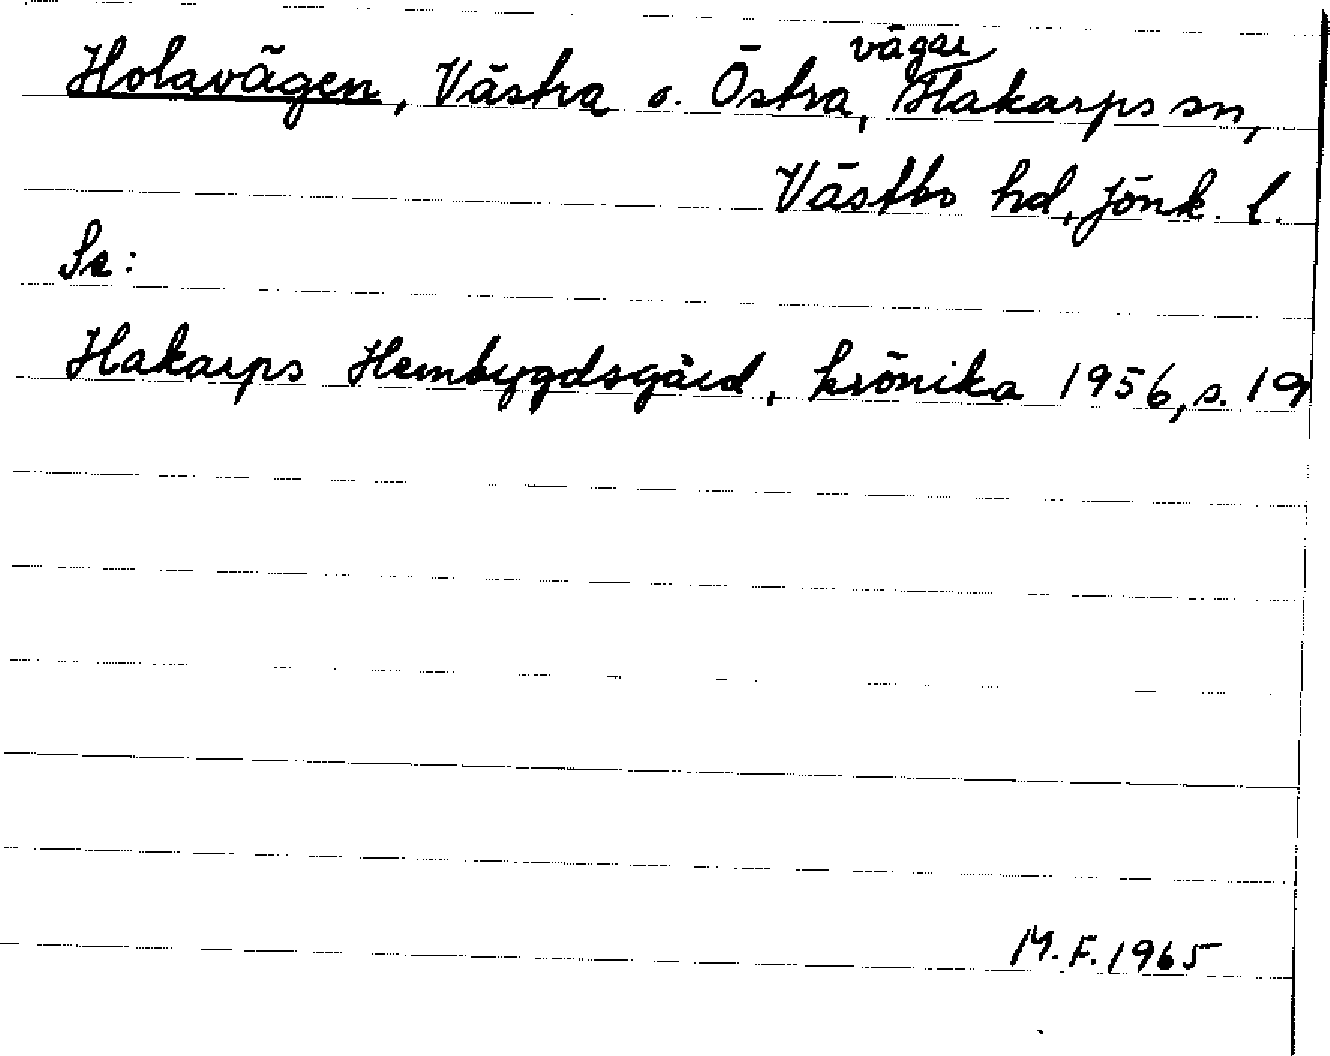 Holavägen, Västra o. Östra, vägar Hakarps sn,
Västbo hd, Jönk. l.
Se:
Hakarps Hembygdsgård, krönika 1956, s. 19
M.F. 1965